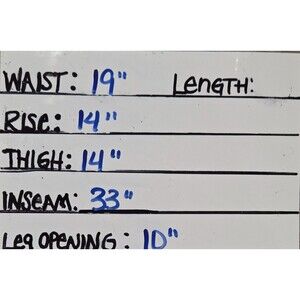 WAIST: 19" LENGTH:
RISE: 14"
THIGH: 14"
INSEAM: 33"
Leg OPENING: 10"